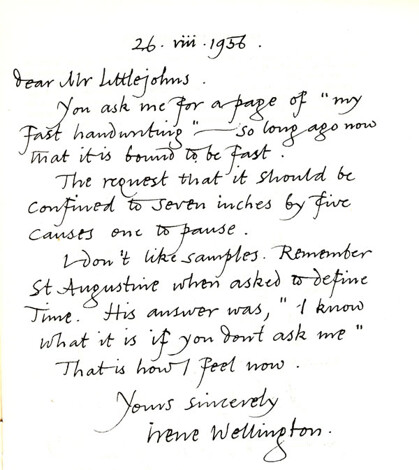 26 · viii · 1956 .
dear Mr Littlejohns .
You ask me for a page of "my
fast handwriting" — so long ago now
that it is bound to be fast .
The request that it should be
confined to seven inches by five
causes one to pause .
I don't like samples. Remember
St Augustine when asked to define
Time. His answer was, "I know
what it is if you dont ask me"
That is how I feel now .
Yours sincerely
Irene Wellington.